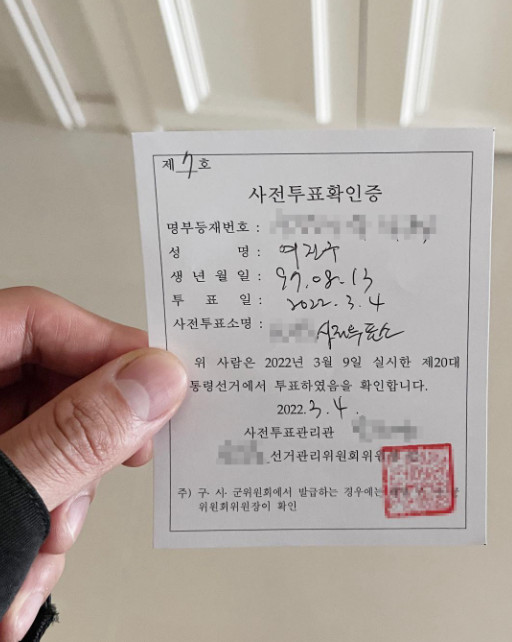 제 7 호
사전투표확인증
명부등재번호 :
성 명 : 여진구
생년월일 : 97.08.13
투 표 일 : 2022. 3. 4
사전투표소명 : 사전투표소
위 사람은 2022년 3월 9일 실시한 제20대
통령선거에서 투표하였음을 확인합니다.
2022. 3. 4.
사전투표관리관
선거관리위원회위원
주) 구·시·군위원회에서 발급하는 경우에는
위원회위원장이 확인